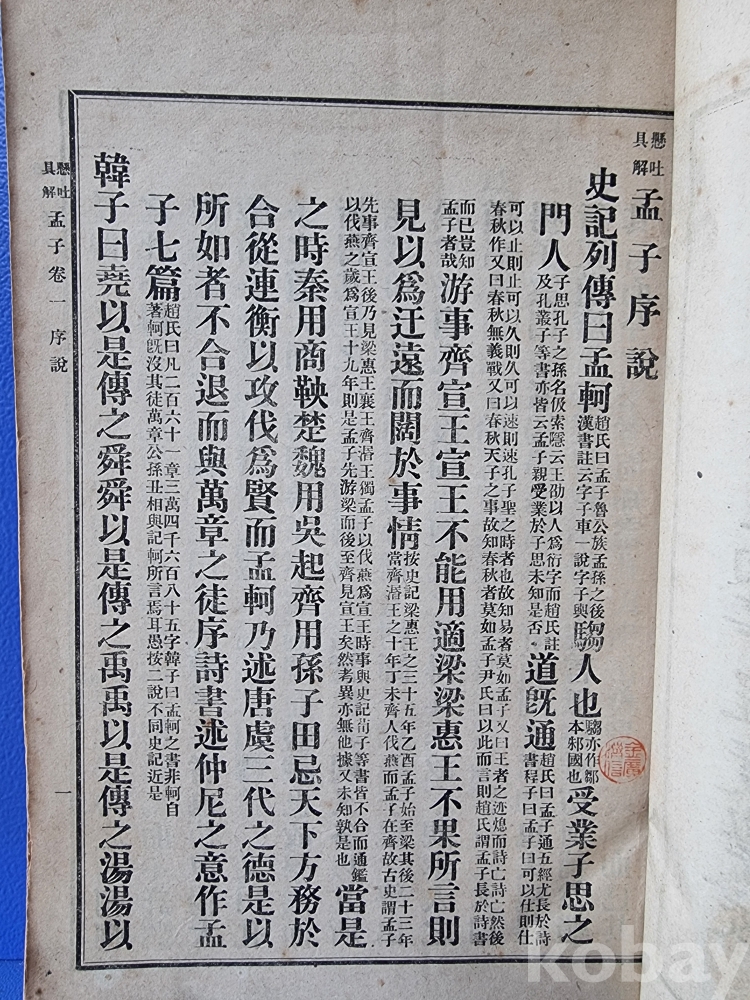 懸吐具解 孟子序說
史記列傳曰孟軻趙氏曰孟子魯公族孟孫之後漢書註云字子車一說字子輿騶人也騶亦作鄒本邾國也受業子思之
門人子思孔子之孫名伋索隱云王劭以人爲衍字而趙氏註及孔叢子等書亦皆云孟子親受業於子思未知是否道旣通趙氏曰孟子通五經尤長於詩書程子曰孟子曰可以仕則仕
可以止則止可以久則久可以速則速孔子聖之時者也故知易者莫如孟子又曰王者之迹熄而詩亡詩亡然後春秋作又曰春秋無義戰又曰春秋天子之事故知春秋者莫如孟子尹氏曰以此而言則趙氏謂孟子長於詩書
而已豈知孟子者哉游事齊宣王宣王不能用適梁梁惠王不果所言則
見以爲迂遠而闊於事情按史記梁惠王之三十五年乙酉孟子始至梁其後二十三年當齊湣王之十年丁未齊人伐燕而孟子在齊故古史謂孟子
先事齊宣王後乃見梁惠王襄王齊湣王獨孟子以伐燕爲宣王時事與史記荀子等書皆不合而通鑑以伐燕之歲爲宣王十九年則是孟子先游梁而後至齊見宣王矣然考異亦無他據又未知孰是也當是
之時秦用商鞅楚魏用吳起齊用孫子田忌天下方務於
合從連衡以攻伐爲賢而孟軻乃述唐虞三代之德是以
所如者不合退而與萬章之徒序詩書述仲尼之意作孟
子七篇趙氏曰凡二百六十一章三萬四千六百八十五字韓子曰孟軻之書非軻自著軻旣沒其徒萬章公孫丑相與記軻所言焉耳愚按二說不同史記近是
韓子曰堯以是傳之舜舜以是傳之禹禹以是傳之湯湯以
懸吐具解 孟子卷一 序說 一
kobay